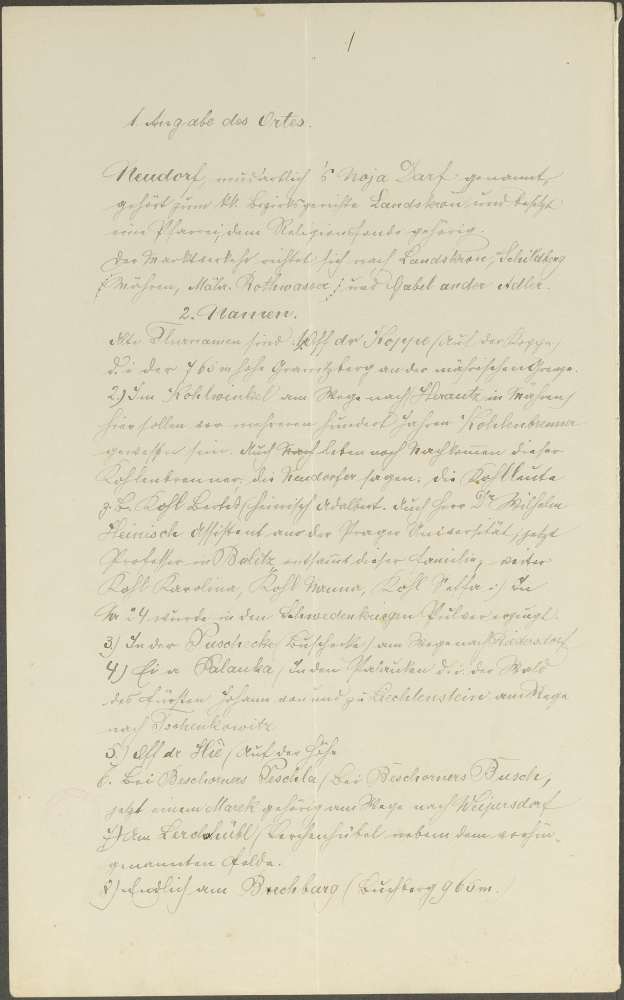 1
1. Angabe des Ortes.
Neudorf, mundartlich 's Noja Darf genannt,
gehört zum kk. Bezirksgerichte Landskron und besitzt
eine Pfarrei, dem Religionsfonde gehörig.
Der Marktverkehr richtet sich nach Landskron, Schildberg
(Mähren, Mähr. Rothwasser) und Gabel an der Adler.
2. Namen.
Alte Flurnamen sind 1) Off dr Koppe (Auf der Koppe)
d. i. der 760 m hohe Grenzberg an der mährischen Grenze.
2.) Im Kohlwinkel am Wege nach Herautz in Mähren,
hier sollen vor mehreren hundert Jahren Kohlenbrenner
gewesen sein. Auch leben noch Nachkommen dieser
Kohlenbrenner, die Neudorfer sagen: die Kohlleute
z. B. Kohl Heinisch Adalbert. Auch Herr Dr Wilhelm
Heinisch Assistent an der Prager Universität, jetzt
Professor in entstammt dieser Familie, weiter
Kohl Karolina, Kohl Nanna, Kohl In
No 24 wurde in den Schwedenkriegen Pulver erzeugt.
3.) In der Puschecke (Buschecke) am Wege nach
4) Ei a Palauka, In den d. i. der Wald
des Fürsten Johann von und zu Liechtenstein am Wege
nach Tschenkowitz
5.) Off dr Hie (Auf der Höhe
6. Bei Beschorners Peschla (Bei Beschorners Busch,
jetzt einem Marek gehörig am Wege nach Weipersdorf
7) Am Lerchahübl (Lerchenhübel neben dem vorhin
genannten Felde.
8) Endlich am Buchburg (Buchberg 960 m.)